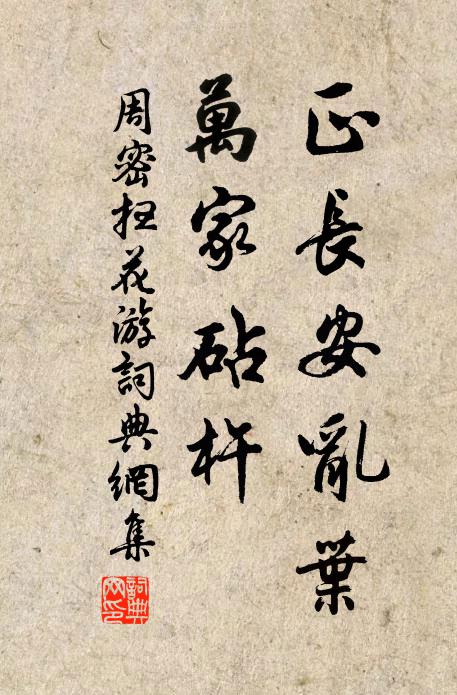 正長安亂葉
萬家砧杵
周密扫花游詞典網集
詞典网印